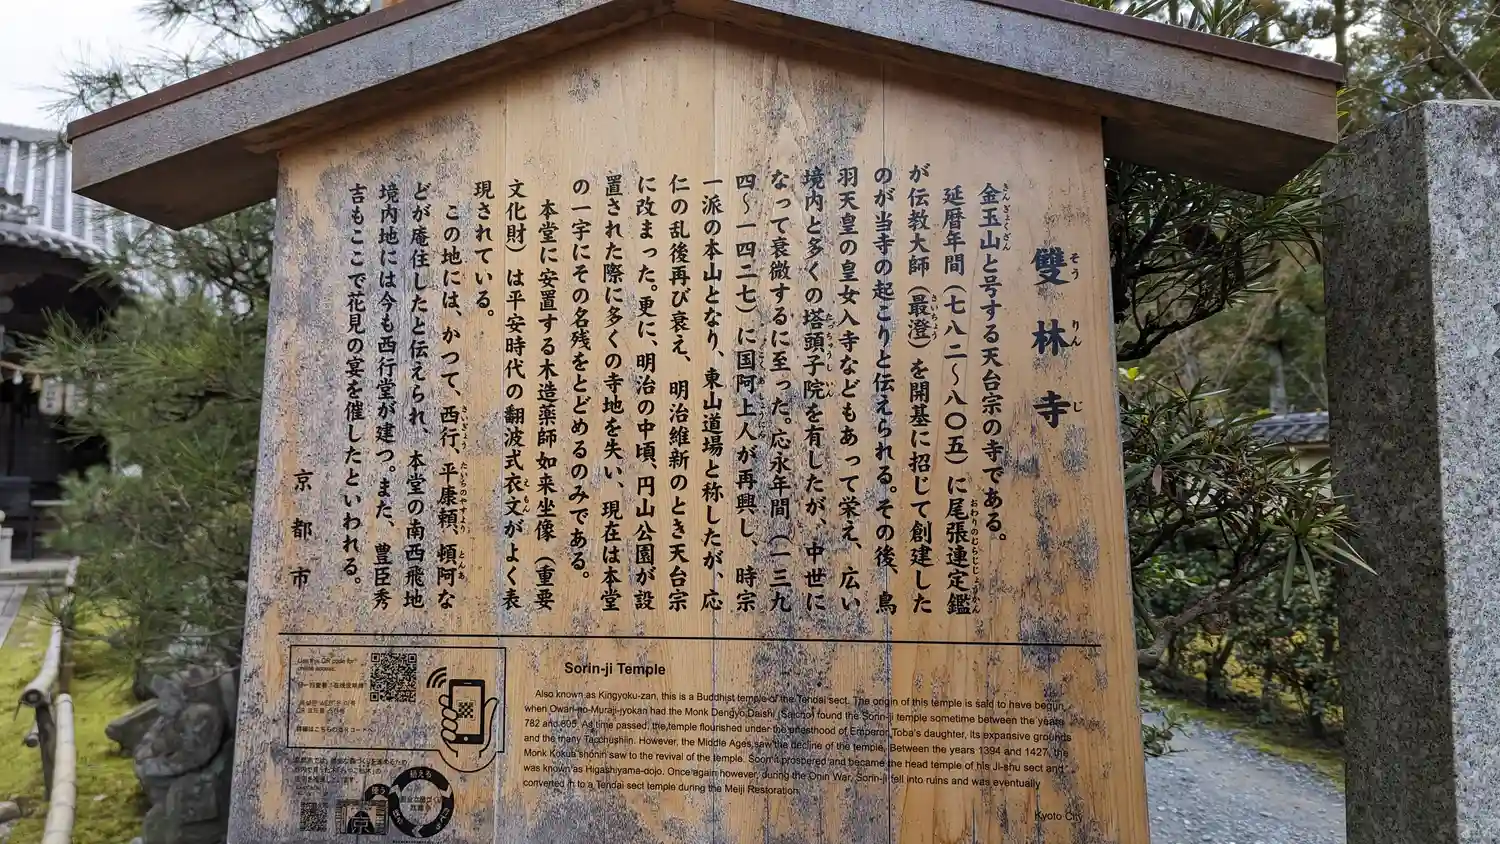 雙林寺
そうりんじ
金玉山と号する天台宗の寺である。
きんぎょくざん
延暦年間(七八二〜八〇五)に尾張連定鑑
おわりのむらじじょうかん
が伝教大師(最澄)を開基に招じて創建した
さいちょう
のが当寺の起こりと伝えられる。その後、鳥
羽天皇の皇女入寺などもあって栄え、広い
境内と多くの塔頭子院を有したが、中世に
たっちゅうしいん
なって衰微するに至った。応永年間(一三九
四〜一四二七)に国阿上人が再興し、時宗
こくあしょうにん
一派の本山となり、東山道場と称したが、応
仁の乱後再び衰え、明治維新のとき天台宗
に改まった。更に、明治の中頃、円山公園が設
置された際に多くの寺地を失い、現在は本堂
の一宇にその名残をとどめるのみである。
本堂に安置する木造薬師如来坐像(重要
文化財)は平安時代の翻波式衣文がよく表
えもん
現されている。
この地には、かつて、西行、平康頼、頓阿な
さいぎょう たいらのやすより とんあ
どが庵住したと伝えられ、本堂の南西飛地
境内地には今も西行堂が建つ。また、豊臣秀
吉もここで花見の宴を催したといわれる。
京都市
Use this QR code for
online access.
詳細はこちらのQRコードへ
Sorin-ji Temple
Also known as Kingyoku-zan, this is a Buddhist temple of the Tendai sect. The origin of this temple is said to have begun
when Owari-no-Muraji-jyokan had the Monk Dengyo Daishi (Saicho) found the Sorin-ji temple sometime between the years
782 and 805. As time passed, the temple flourished under the priesthood of Emperor Toba's daughter, its expansive grounds
and the many Tacchushiin. However, the Middle Ages saw the decline of the temple. Between the years 1394 and 1427, the
Monk Kokua shonin saw to the revival of the temple. Soon it prospered and became the head temple of his Ji-shu sect and
was known as Higashiyama-dojo. Once again however, during the Onin War, Sorin-ji fell into ruins and was eventually
converted in to a Tendai sect temple during the Meiji Restoration.
Kyoto City